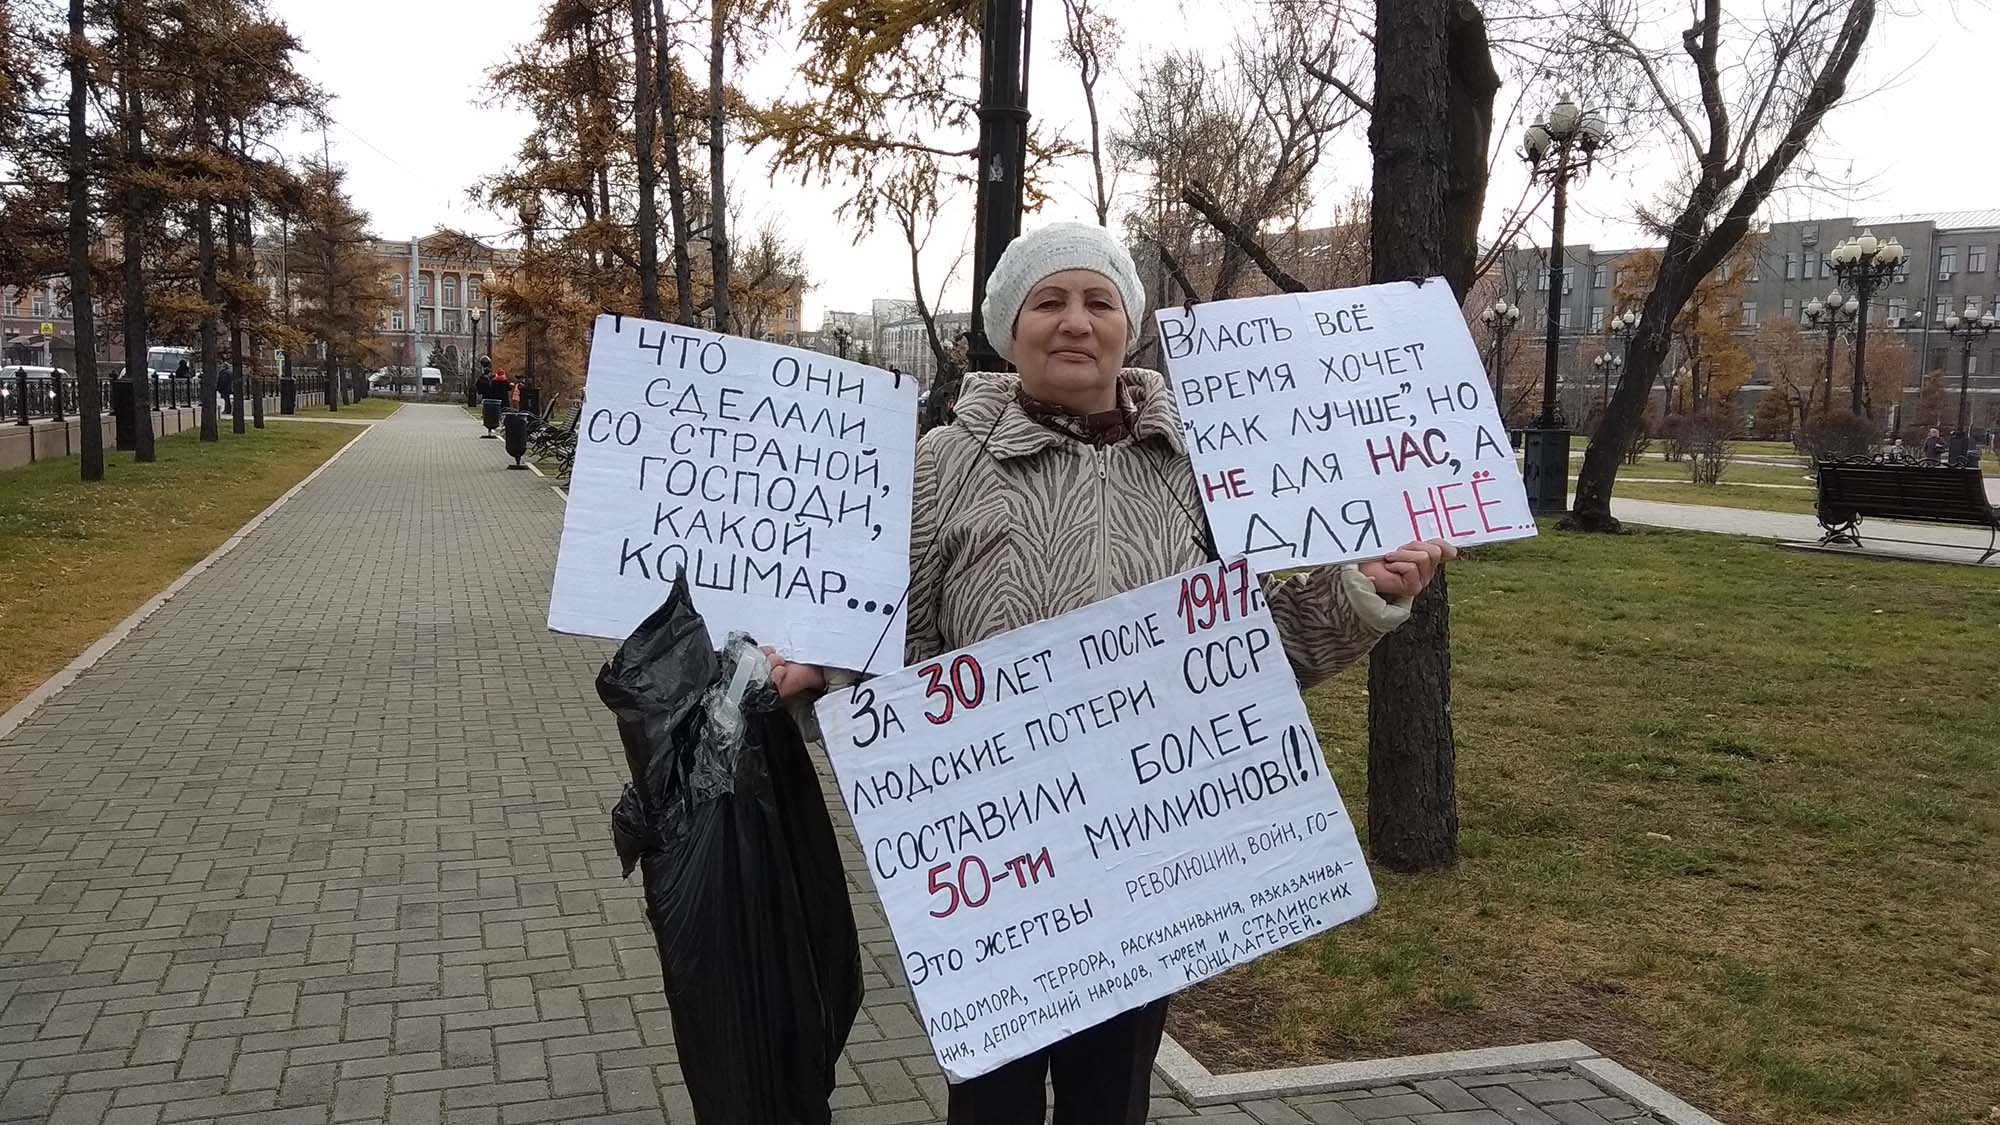 ЧТО́ ОНИ
СДЕЛАЛИ
СО СТРАНОЙ,
ГОСПОДИ,
КАКОЙ
КОШМАР...
ВЛАСТЬ ВСЁ
ВРЕМЯ ХОЧЕТ
"КАК ЛУЧШЕ", НО
НЕ ДЛЯ НАС, А
ДЛЯ НЕЁ...
ЗА 30 ЛЕТ ПОСЛЕ 1917г.
ЛЮДСКИЕ ПОТЕРИ СССР
СОСТАВИЛИ БОЛЕЕ
50-ТИ МИЛЛИОНОВ(!)
ЭТО ЖЕРТВЫ РЕВОЛЮЦИИ, ВОЙН, ГО-
ЛОДОМОРА, ТЕРРОРА, РАСКУЛАЧИВАНИЯ, РАЗКАЗАЧИВА-
НИЯ, ДЕПОРТАЦИЙ НАРОДОВ, ТЮРЕМ И СТАЛИНСКИХ
КОНЦЛАГЕРЕЙ.